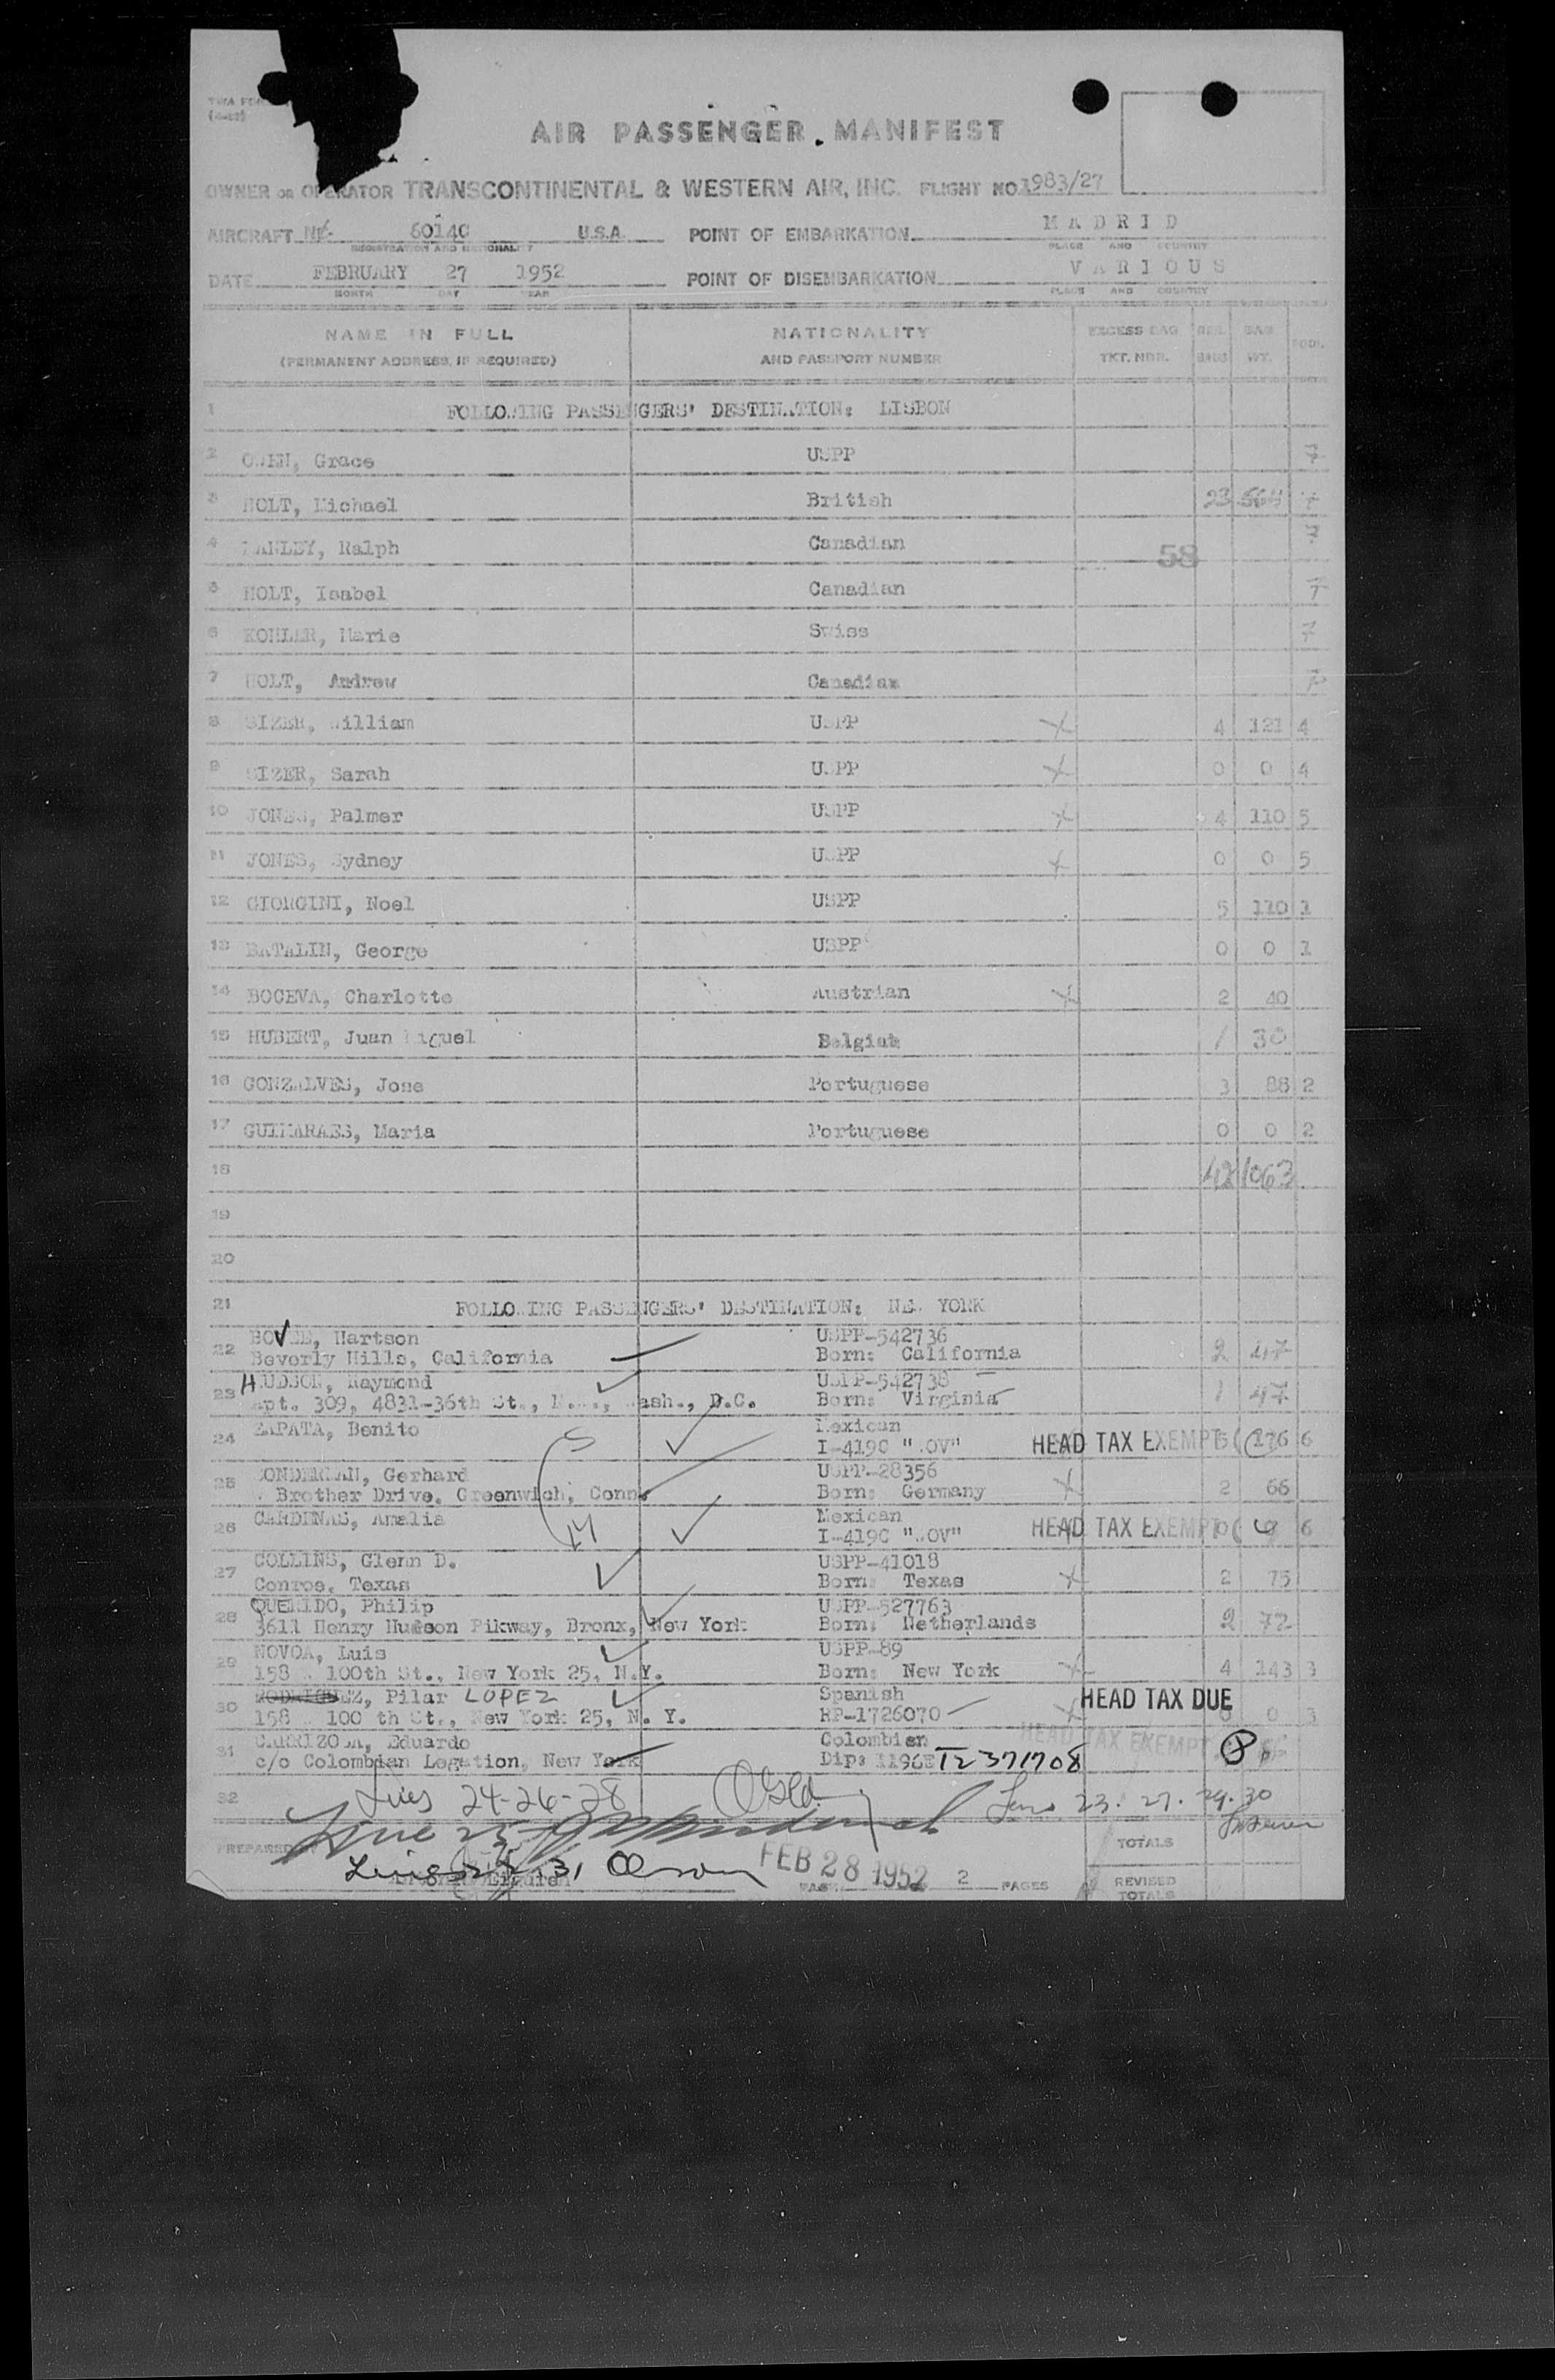 TWA FORM
AIR PASSENGER MANIFEST
OWNER OR OPERATOR TRANSCONTINENTAL & WESTERN AIR, INC. FLIGHT NO. 983/27
AIRCRAFT 6014C U.S.A. POINT OF EMBARKATION MADRID
REGISTRATION AND NATIONALITY PLACE AND COUNTRY
DATE FEBRUARY 27 1952 POINT OF DISEMBARKATION VARIOUS
MONTH DAY YEAR PLACE AND COUNTRY
NAME IN FULL NATIONALITY EXCESS BAG BAG
(PERMANENT ADDRESS, IF REQUIRED) AND PASSPORT NUMBER TKT. NBR. BAGS WT.
1 FOLLOWING PASSENGERS' DESTINATION: LISBON
2 OWEN, Grace USPP 7
3 HOLT, Michael British 23 7
4 Ralph Canadian 7
58
5 HOLT, Isabel Canadian 7
6 KOHLER, Marie Swiss 7
7 HOLT, Andrew Canadian 7
8 SIZER, William USPP 4 121 4
9 SIZER, Sarah USPP 0 0 4
10 JONES, Palmer USPP 4 110 5
11 JONES, Sydney USPP 0 0 5
12 GIORGINI, Noel USPP 5 110 1
13 BATALIN, George USPP 0 0 1
14 BOCEVA, Charlotte Austrian 2 40
15 HUBERT, Juan Miguel Belgian 1 30
16 GONZALVES, Jose Portuguese 3 88 2
17 GUIMARAES, Maria Portuguese 0 0 2
18 42 1063
19
20
21 FOLLOWING PASSENGERS' DESTINATION: NEW YORK
22 BOVEE, Hartson USPP-542736 2 47
Beverly Hills, California Born: California
23 HUDSON, Raymond USPP-542738 1 47
Apt. 309, 4831-36th St., Wash., D.C. Born: Virginia
24 ZAPATA, Benito Mexican
I-419C HEAD TAX EXEMPT 176 6
25 Gerhard USPP-28356
Brother Drive, Greenwich, Conn. Born: Germany 2 66
26 CARDENAS, Amalia Mexican
I-419C HEAD TAX EXEMPT 0 6
27 COLLINS, Glenn D. USPP-41018
Conroe, Texas Born: Texas 2 75
28 QUERIDO, Philip USPP-527763
3611 Henry Hudson Pikway, Bronx, New York Born: Netherlands 2 72
29 NOVOA, Luis USPP-89
158 100th St., New York 25, N.Y. Born: New York 4 143 3
30 Pilar LOPEZ Spanish HEAD TAX DUE
158 100 th St., New York 25, N. Y. RP-1726070 0 0 3
31 CARRIZOSA, Eduardo Colombian HEAD TAX EXEMPT
c/o Colombian Legation, New York Dip: 1196E T2371708
32 Lines 24-26-28 Lines 23. 27. 29. 30
Line 25
PREPARED TOTALS
Lines 22 31 Olson FEB 28 1952 2 PAGES REVISED
TOTALS